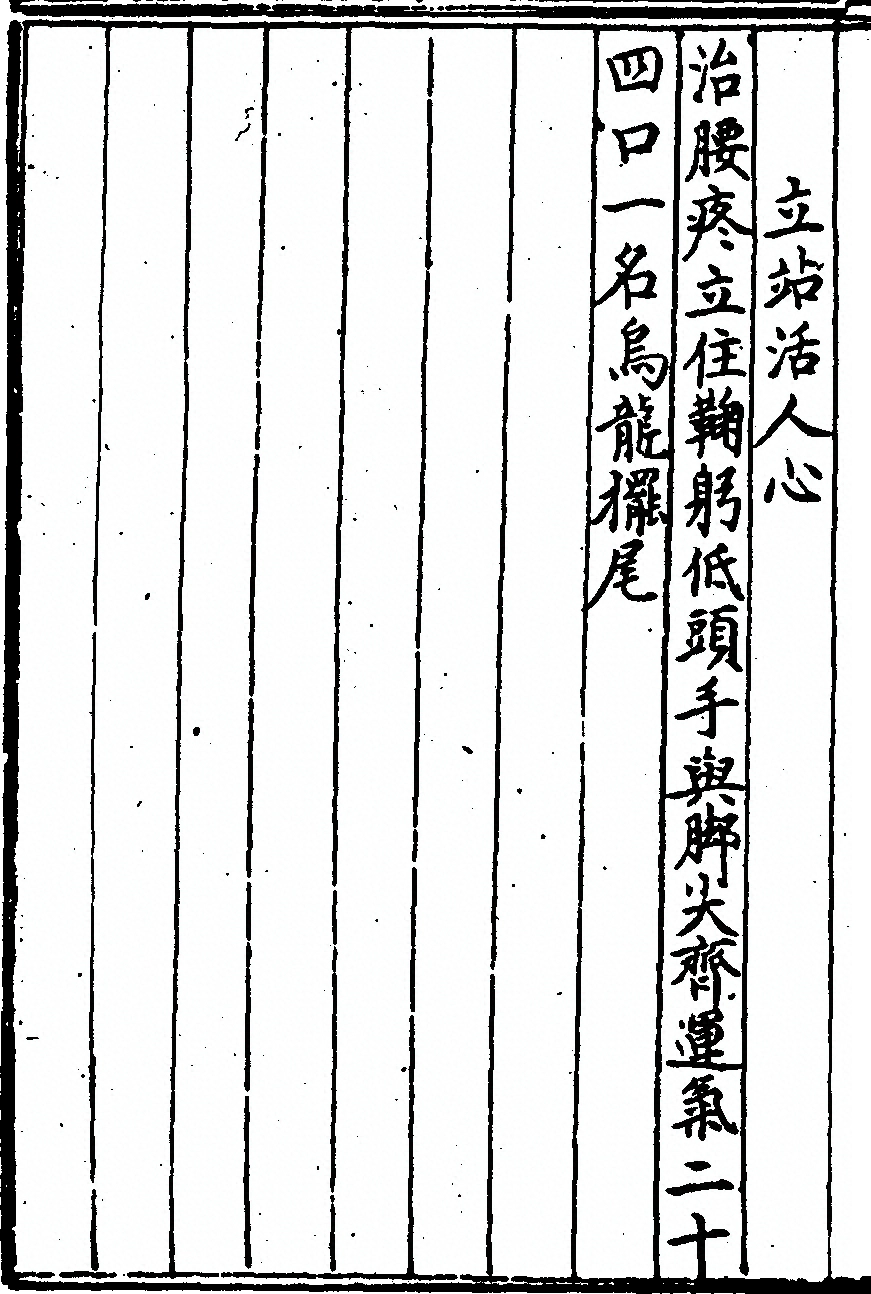 立站活人心
治腰疼立住鞠躬低頭手與脚尖齊運氣二十
四口一名烏龍擺尾